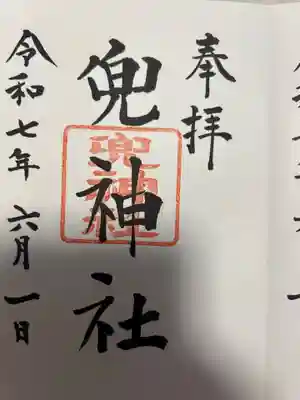 奉拝
兜神社
兜神社
令和七年六月一日